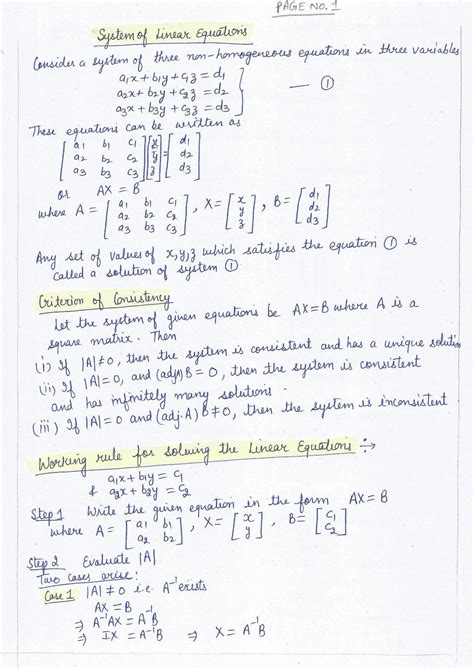 PAGE NO. 1
System of Linear Equations
Consider a system of three non-homogeneous equations in three variables
a₁x + b₁y + c₁z = d₁
a₂x + b₂y + c₂z = d₂ } — ①
a₃x + b₃y + c₃z = d₃
These equations can be written as
[a₁ b₁ c₁] [x] [d₁]
[a₂ b₂ c₂] [y] = [d₂]
[a₃ b₃ c₃] [z] [d₃]
or AX = B
where A = [a₁ b₁ c₁; a₂ b₂ c₂; a₃ b₃ c₃], X = [x; y; z], B = [d₁; d₂; d₃]
Any set of values of x, y, z which satisfies the equation ① is
called a solution of system ①
Criterion of Consistency
Let the system of given equations be AX = B where A is a
square matrix. Then
(i) If |A| ≠ 0, then the system is consistent and has a unique solution
(ii) If |A| = 0, and (adjA) B = 0, then the system is consistent
and has infinitely many solutions.
(iii) If |A| = 0 and (adj.A) B ≠ 0, then the system is inconsistent
Working rule for solving the Linear Equations ÷→
a₁x + b₁y = c₁
& a₂x + b₂y = c₂
Step 1 Write the given equation in the form AX = B
where A = [a₁ b₁; a₂ b₂], X = [x; y], B = [c₁; c₂]
Step 2 Evaluate |A|
Two cases arise:
Case 1 |A| ≠ 0 i.e. A⁻¹ exists
AX = B
⇒ A⁻¹AX = A⁻¹B
⇒ IX = A⁻¹B ⇒ X = A⁻¹B